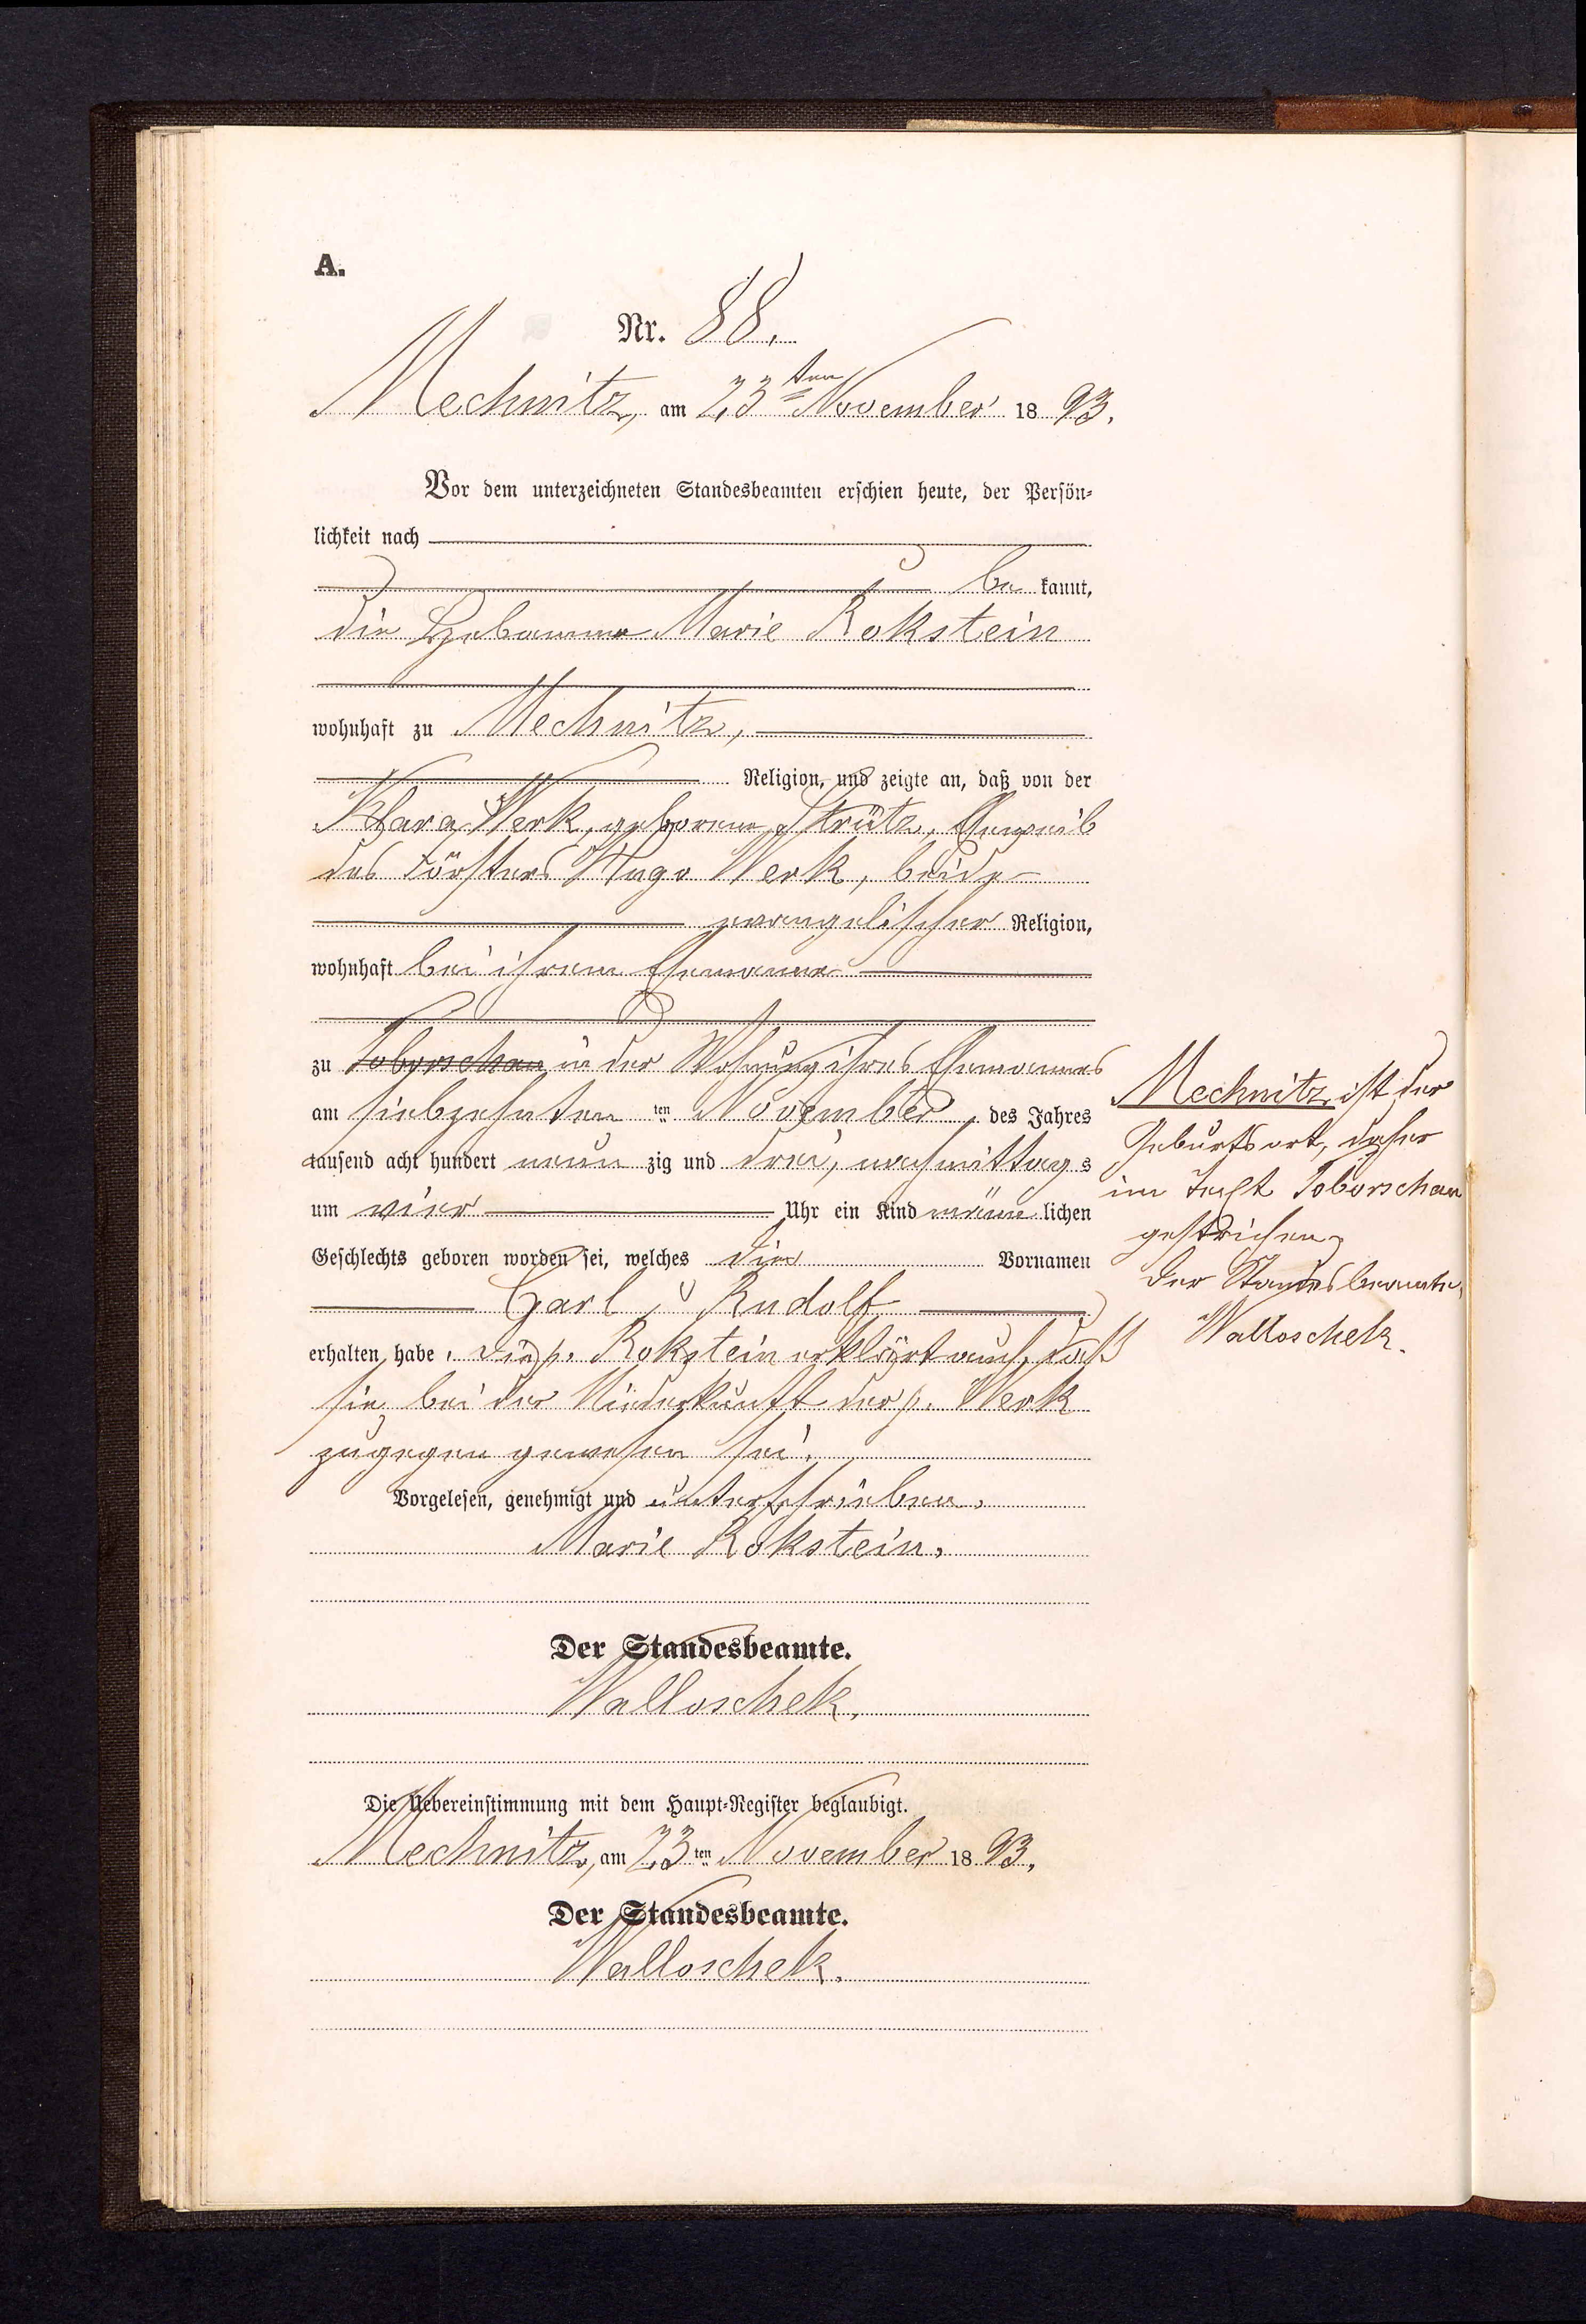 A.
Nr. 88.
Mechnitz, am 23ten November 1893.
Vor dem unterzeichneten Standesbeamten erschien heute, der Persön-
lichkeit nach
be kannt,
die Hebamme Marie Rokstein
wohnhaft zu Mechnitz,
Religion, und zeigte an, daß von der
Klara Werk, geborene Strütz, Eheweib
des Försters Hugo Werk, beide
evangelischer Religion,
wohnhaft bei ihrem Ehemanne
zu Toborschau in der Wohnung ihres Ehemannes
am siebzehnten ten November des Jahres
tausend acht hundert neun zig und drei, nachmittags
um vier Uhr ein Kind männ lichen
Geschlechts geboren worden sei, welches die Vornamen
Carl, Rudolf
erhalten habe. Die p. Rokstein erklärt auch, daß
sie bei der Niederkunft der p. Werk
zugegen gewesen sei.
Vorgelesen, genehmigt und unterschrieben.
Marie Rokstein.
Der Standesbeamte.
Walloschek.
Die Uebereinstimmung mit dem Haupt-Register beglaubigt.
Mechnitz, am 23ten November 1893.
Der Standesbeamte.
Walloschek.
Mechnitz ist der
Geburtsort, daher
im Text Toborschau
gestrichen.
Der Standesbeamte,
Walloschek.